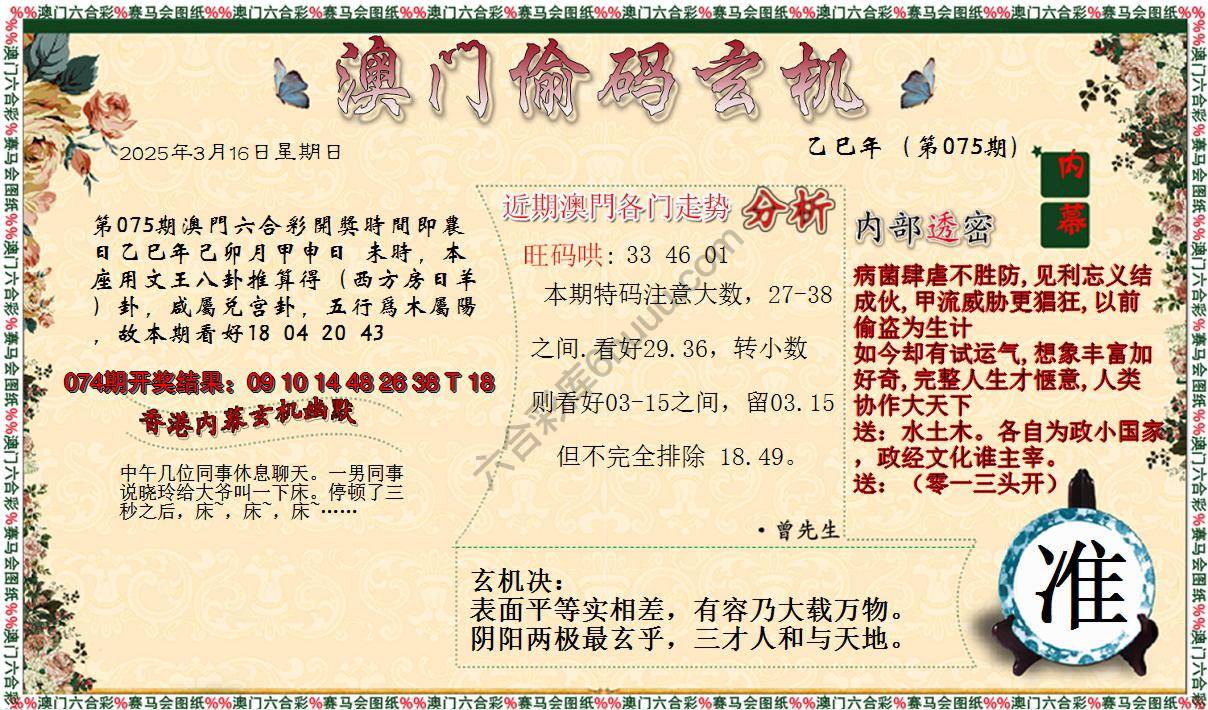 %%澳门六合彩%赛马会图纸%%澳门六合彩%赛马会图纸%%澳门六合彩%赛马会图纸%%澳门六合彩%赛马会图纸%%澳门六合彩%赛马会图纸%%澳门六合彩%赛马会图纸%%
澳门偷码玄机
2025年3月16日星期日
乙巳年（第075期）
内
幕
第075期澳門六合彩開獎時間即農
日乙巳年己卯月甲申日 未時，本
座用文王八卦推算得（西方房日羊
）卦，咸屬兑宫卦，五行爲木屬陽
，故本期看好18 04 20 43
074期开奖结果：09 10 14 48 26 38 T 18
香港内幕玄机幽默
中午几位同事休息聊天。一男同事
说晓玲给大爷叫一下床。停顿了三
秒之后，床~，床~，床~……
近期澳門各门走势 分析
旺码哄: 33 46 01
本期特码注意大数，27-38
之间.看好29.36，转小数
则看好03-15之间，留03.15
但不完全排除 18.49。
·曾先生
内部透密
病菌肆虐不胜防,见利忘义结
成伙,甲流威胁更猖狂,以前
偷盗为生计
如今却有试运气,想象丰富加
好奇,完整人生才惬意,人类
协作大天下
送：水土木。各自为政小国家
，政经文化谁主宰。
送：（零一三头开）
玄机决：
表面平等实相差，有容乃大载万物。
阴阳两极最玄乎，三才人和与天地。
准
六合彩库